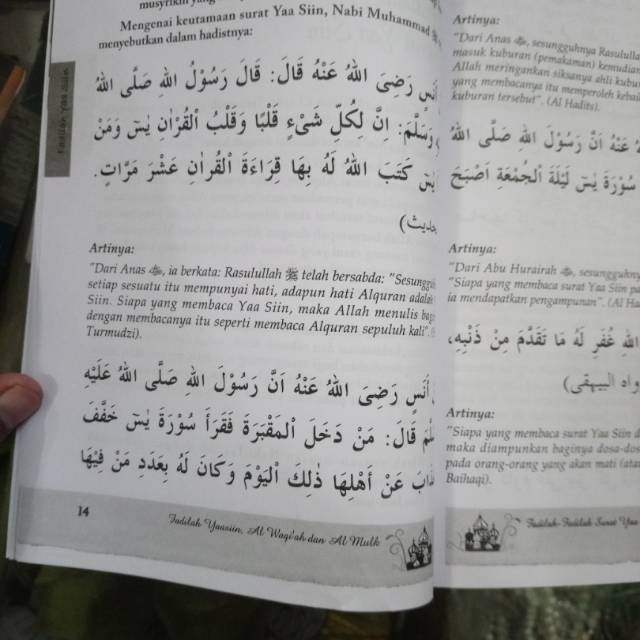 Mengenai keutamaan surat Yaa Siin, Nabi Muhammad ﷺ
menyebutkan dalam hadistnya:
اَنَسٍ رَضِىَ اللهُ عَنْهُ قَالَ: قَالَ رَسُوْلُ اللهِ صَلَّى اللهُ
وَسَلَّمَ: اِنَّ لِكُلِّ شَىْءٍ قَلْبًا وَقَلْبُ الْقُرْاٰنِ يٰسٓ وَمَنْ
يٰسٓ كَتَبَ اللهُ لَهُ بِهَا قِرَاءَةَ الْقُرْاٰنِ عَشْرَ مَرَّاتٍ.
Artinya:
"Dari Anas ﷺ, ia berkata: Rasulullah ﷺ telah bersabda: "Sesungguh
setiap sesuatu itu mempunyai hati, adapun hati Alquran adalah
Siin. Siapa yang membaca Yaa Siin, maka Allah menulis bag
dengan membacanya itu seperti membaca Alquran sepuluh kali".
Turmudzi).
اَنَسٍ رَضِىَ اللهُ عَنْهُ اَنَّ رَسُوْلَ اللهِ صَلَّى اللهُ عَلَيْهِ
قَالَ: مَنْ دَخَلَ الْمَقْبَرَةَ فَقَرَأَ سُوْرَةَ يٰسٓ خَفَّفَ
عَنْ اَهْلِهَا ذٰلِكَ الْيَوْمَ وَكَانَ لَهُ بِعَدَدِ مَنْ فِيْهَا
14
Fadilah Yaasiin, Al Waqi'ah dan Al Mulk
Fadilah Yaa Siin
Artinya:
"Dari Anas ﷺ, sesungguhnya Rasululla
masuk kuburan (pemakaman) kemudian
Allah meringankan siksanya ahli kubur
yang membacanya itu memperoleh keba
kuburan tersebut". (Al Hadits).
عَنْهُ اَنَّ رَسُوْلَ اللهِ صَلَّى اللهُ
سُوْرَةَ يٰسٓ لَيْلَةَ الْجُمْعَةِ اَصْبَحَ
Artinya:
"Dari Abu Hurairah ﷺ, sesungguhny
"Siapa yang membaca surat Yaa Siin pa
ia mendapatkan pengampunan". (Al Ha
اللهِ غُفِرَ لَهُ مَا تَقَدَّمَ مِنْ ذَنْبِهِ،
رواه البيهقى)
Artinya:
"Siapa yang membaca surat Yaa Siin d
maka diampunkan baginya dosa-dos
pada orang-orang yang akan mati (ata
Baihaqi).
Fadilah-Fadilah Surat Yaa